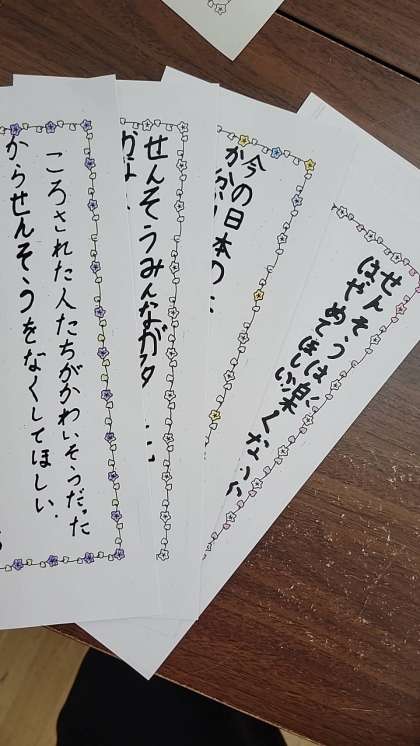 せんそうは楽くない
はやめてほしい
今の日本の
せんそうみんなが
ころされた人たちがかわいそうだった
からせんそうをなくしてほしい.